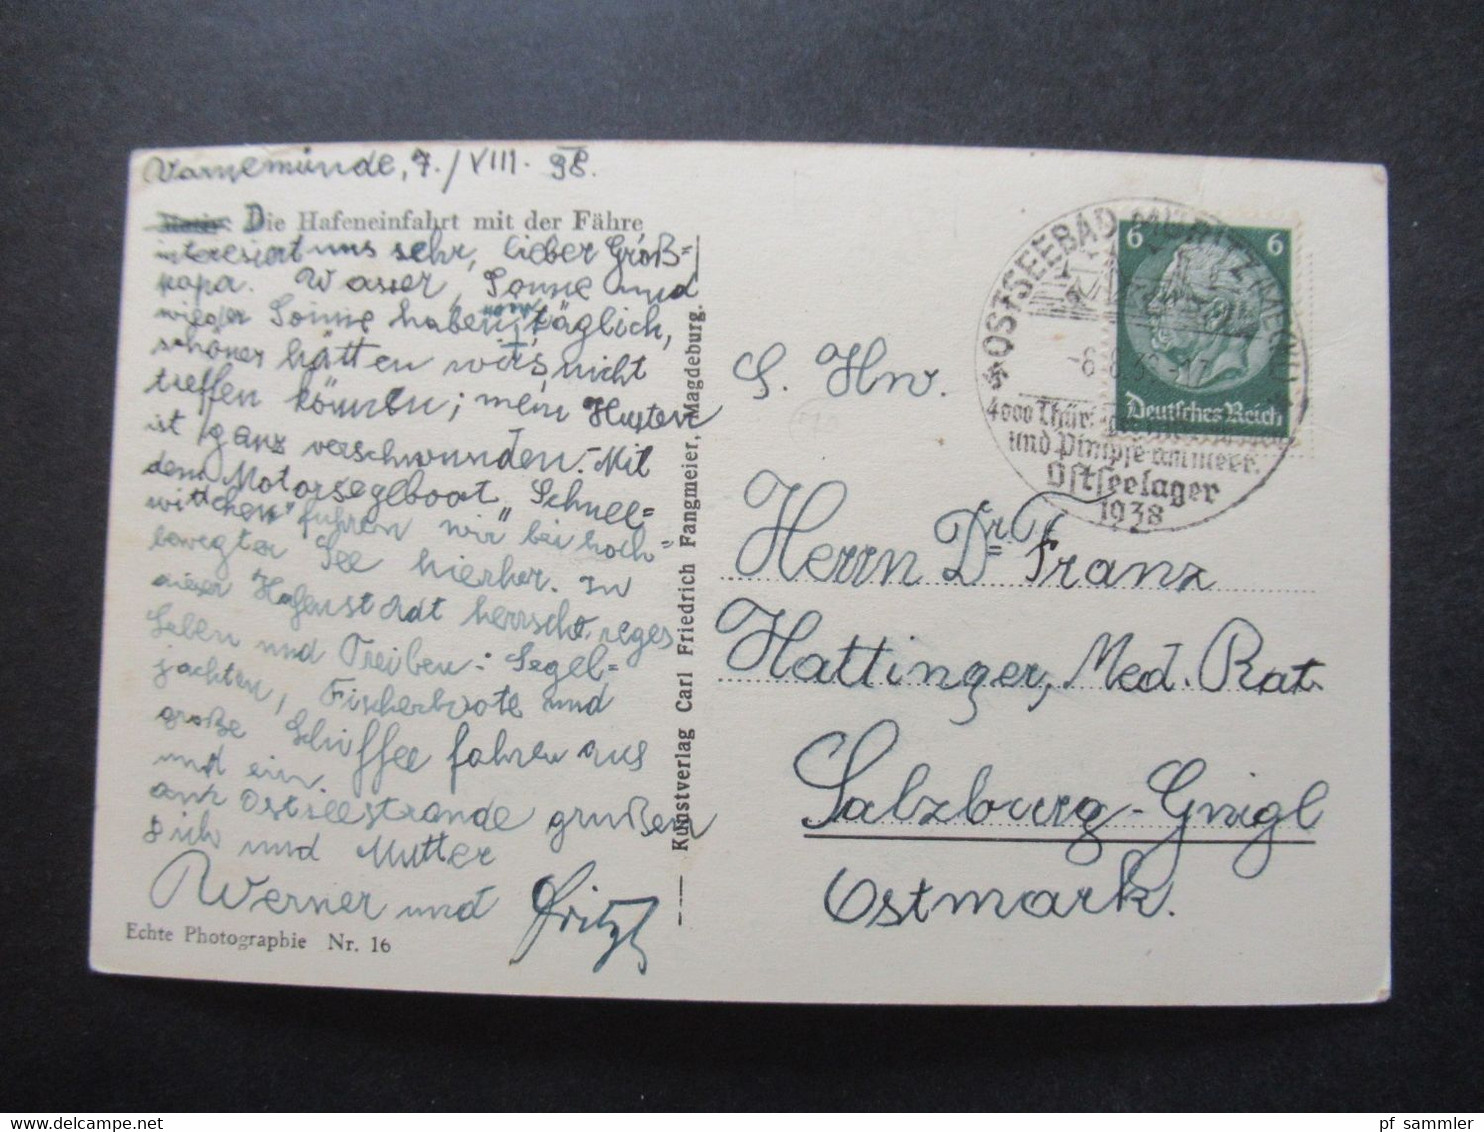 Warnemünde, 7./VIII. 38.
Die Hafeneinfahrt mit der Fähre
interesiert uns sehr, lieber Groß=
papa. Wasser, Sonne und
wieder Sonne haben wir täglich,
schöner hätten wir's nicht
treffen können; mein Husten
ist ganz verschwunden.- Mit
dem Motorsegelboot „Schnee=
wittchen" fuhren wir bei hoch=
bewegter See hierher. In
dieser Hafenstadt herrscht reges
Leben und Treiben: Segel=
jachten, Fischerboote und
große Schiffe fahren aus
und ein.
am Ostseestrande grüßen
Dich und Mutter
Werner und Fritz
Echte Photographie Nr. 16
Kunstverlag Carl Friedrich Fangmeier, Magdeburg.
S. Hw.
Herrn Dr. Franz
Hattinger, Med. Rat.
Salzburg-Gnigl
Ostmark.
6 6
Deutsches Reich
OSTSEEBAD MÜRITZ
4000 Thür.
und Pimpfe am Meer.
Ostseelager
1938
www.delcampe.net
pf sammler